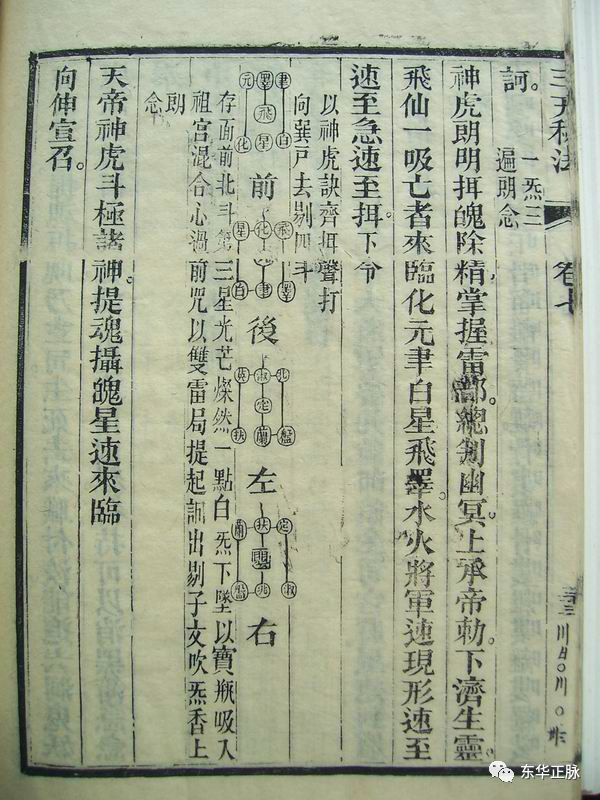 三天秘法
卷七
訶。一炁三遍朗念
神虎朗明挕醜除精掌握雷部總判幽冥上承帝勅下濟生靈。
飛仙一吸亡者來臨化元聿白星飛睪水火將軍速現形速至
速至急速至挕下令
以神虎訣齊挕聲打
向巽戸去剔四斗
聿 白
睪 飛 星
元 化
前
飛 睪
化 聿
星 白
後
北 盤
淑 定 蘭
英 扶
左
定 淑
扶 兆
蘭 盤
右
存面前北斗第三星光芒燦然一點白炁下墜以寶瓶吸入
祖宮混合心過前咒以雙雷局提起訶出剔子文吹炁香上
朗念
天帝神虎斗極諸神提魂攝魄星速來臨
向伸宣召。
東华正脉